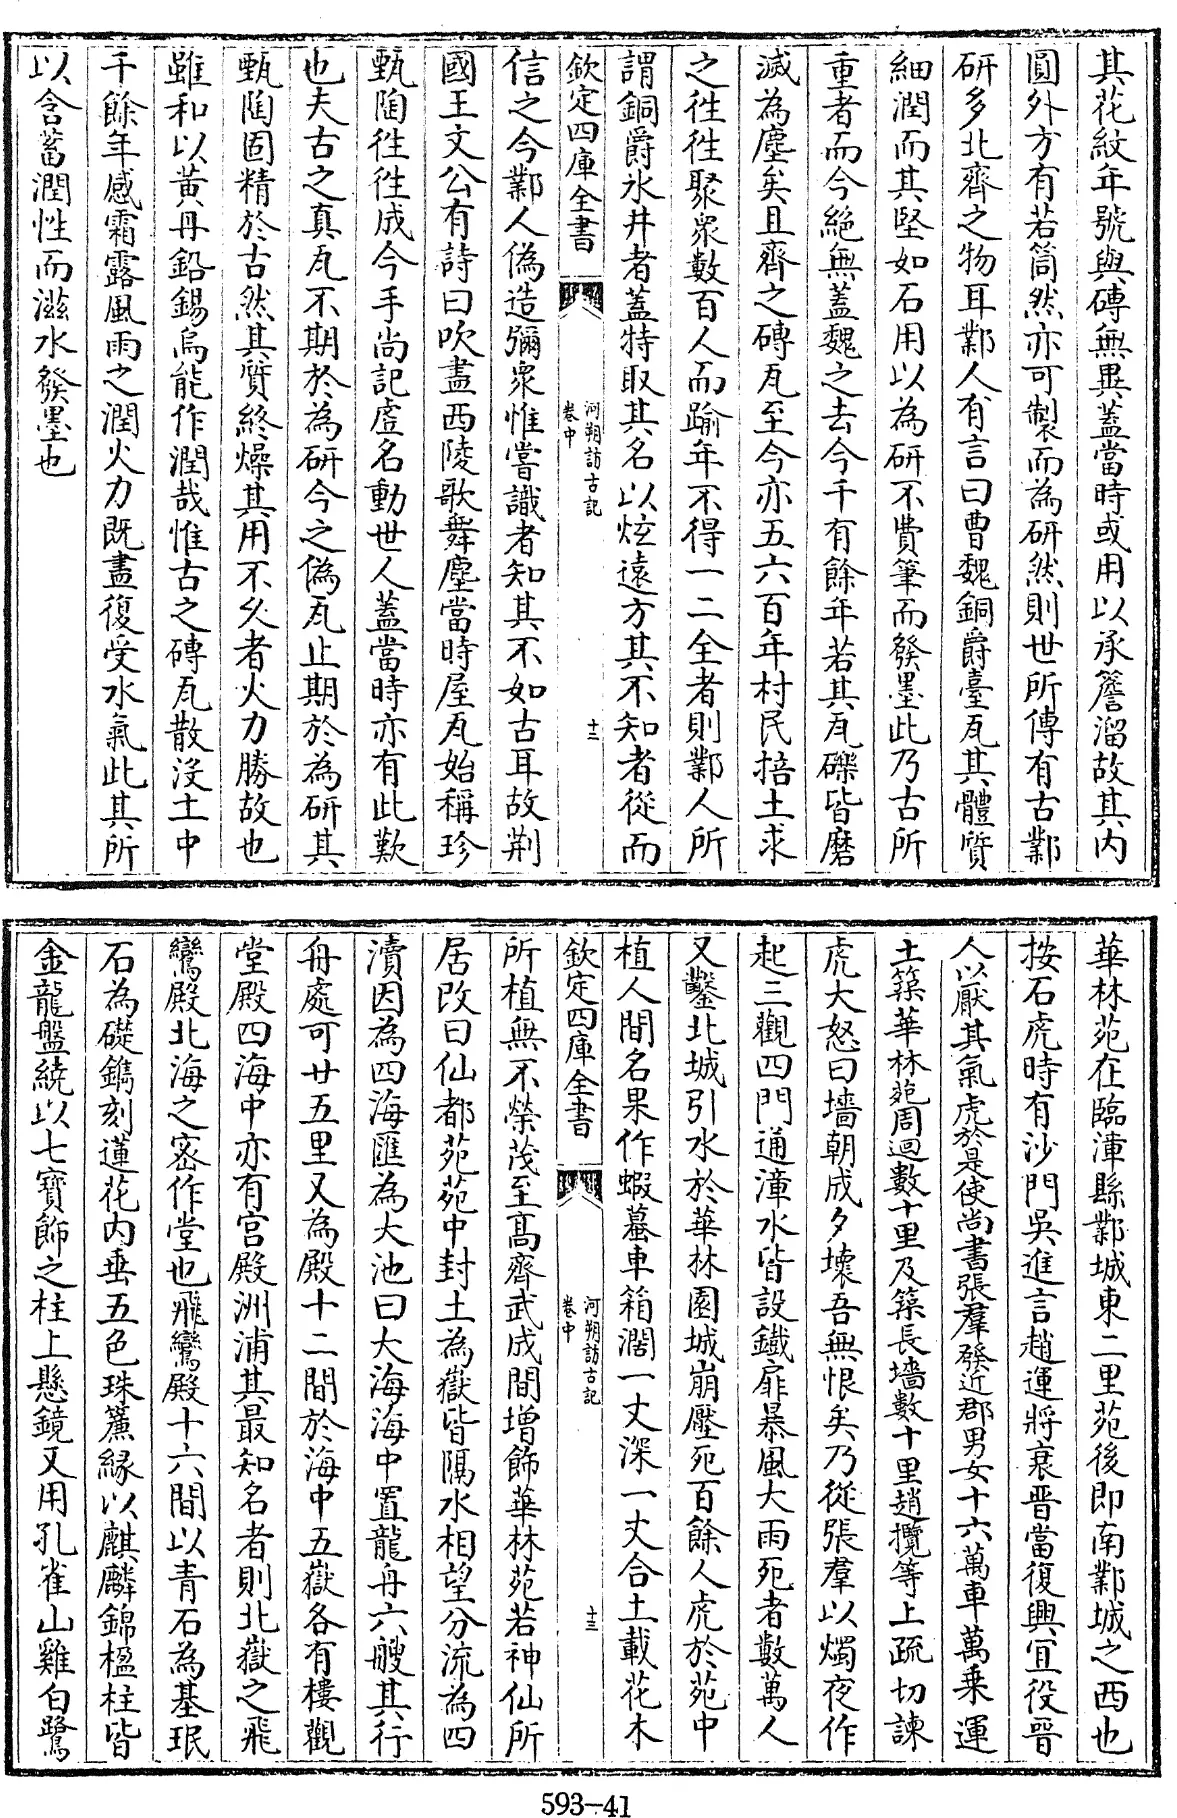 其花紋年號與磚無異蓋當時或用以承簷溜故其内
圓外方有若筒然亦可製而為研然則世所傳有古鄴
研多北齊之物耳鄴人有言曰曹魏銅爵臺瓦其體質
細潤而其堅如石用以為研不費筆而發墨此乃古所
重者而今絶無蓋魏之去今千有餘年若其瓦礫皆磨
滅為塵矣且齊之磚瓦至今亦五六百年村民掊土求
之徃徃聚衆數百人而踰年不得一二全者則鄴人所
謂銅爵氷井者蓋特取其名以炫遠方其不知者從而
欽定四庫全書
河朔訪古記
卷中
十二
信之今鄴人偽造彌衆惟嘗識者知其不如古耳故荆
國王文公有詩曰吹盡西陵歌舞塵當時屋瓦始稱珍
甄陶徃徃成今手尚記虚名動世人蓋當時亦有此歎
也夫古之真瓦不期於為研今之偽瓦止期於為研其
甄陶固精於古然其質終燥其用不久者火力勝故也
雖和以黄丹鉛錫烏能作潤哉惟古之磚瓦散沒土中
千餘年感霜露風雨之潤火力既盡復受水氣此其所
以含蓄潤性而滋水發墨也
華林苑在臨漳縣鄴城東二里苑後即南鄴城之西也
按石虎時有沙門吳進言趙運將衰晋當復興宜役晋
人以厭其氣虎於是使尚書張羣發近郡男女十六萬車萬乗運
土築華林苑周迴數十里及築長墻數十里趙攬等上疏切諫
虎大怒曰墻朝成夕壞吾無恨矣乃從張羣以燭夜作
起三觀四門通漳水皆設鐵扉暴風大雨死者數萬人
又鑿北城引水於華林園城崩壓死百餘人虎於苑中
植人間名果作蝦蟇車箱濶一丈深一丈合土載花木
欽定四庫全書
河朔訪古記
卷中
十三
所植無不榮茂至髙齊武成間增飾華林苑若神仙所
居改曰仙都苑苑中封土為嶽皆隔水相望分流為四
瀆因為四海匯為大池曰大海海中置龍舟六艘其行
舟處可廿五里又為殿十二間於海中五嶽各有樓觀
堂殿四海中亦有宫殿洲浦其最知名者則北嶽之飛
鸞殿北海之宻作堂也飛鸞殿十六間以青石為基珉
石為礎鐫刻蓮花内垂五色珠簾緣以麒麟錦楹柱皆
金龍盤繞以七寳飾之柱上懸鏡又用孔雀山雞白鷺
593-41